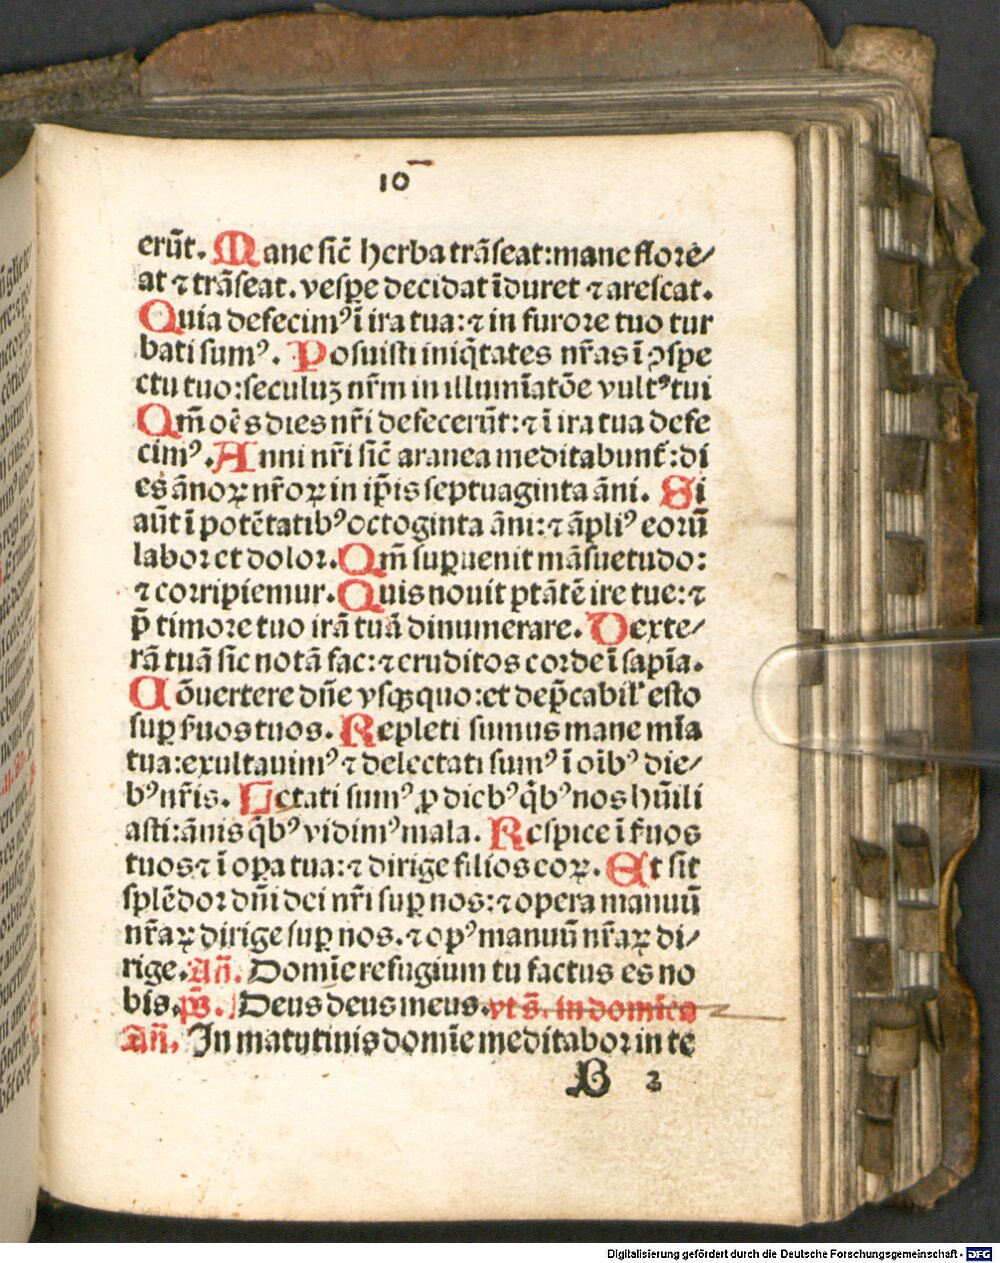 10
erūt. Mane sic̄ herba trāseat: mane flore/
at ⁊ trāseat. vespe decidat īduret ⁊ arescat.
Quia defecimꝰ ī ira tua: ⁊ in furore tuo tur
bati sumꝰ. Posuisti iniq̄tates nr̄as ī ꝯspe
ctu tuo: seculuꝫ nr̄m in illumīatōe vultꝰ tui
Qm̄ oēs dies nr̄i defecerūt: ⁊ ī ira tua defe
cimꝰ. Anni nr̄i sic̄ aranea meditabunt̄: di
es ānoꝝ nr̄oꝝ in ip̄is septuaginta āni. Si
aūt ī potētatibꝰ octoginta āni: ⁊ āpliꝰ eorū
labor et dolor. Qm̄ suꝑuenit māsuetudo:
⁊ corripiemur. Quis nouit ptātē ire tue: ⁊
p̄ timore tuo irā tuā dinumerare. Dexte/
rā tuā sic notā fac: ⁊ eruditos corde ī sapīa.
Cōuertere dn̄e vsqꝫquo: et dep̄cabil' esto
suꝑ s̄uos tuos. Repleti sumus mane mīa
tua: exultauimꝰ ⁊ delectati sumꝰ ī oībꝰ die/
bꝰ nr̄is. Letati sumꝰ ꝓ diebꝰ qb̄ꝰ nos hūili
asti: ānis qb̄ꝰ vidimꝰ mala. Respice ī s̄uos
tuos ⁊ ī oꝑa tua: ⁊ dirige filios eoꝝ. Et sit
splēdor dn̄i dei nr̄i suꝑ nos: ⁊ opera manuū
nr̄aꝝ dirige suꝑ nos. ⁊ opꝰ manuū nr̄aꝝ di/
rige. Añ. Domīe refugium tu factus es no
bis. ps̄. Deus deus meus. vt s̄. in domīca
Añ. In matutinis domīe meditabor in te
B 2
Digitalisierung gefördert durch die Deutsche Forschungsgemeinschaft - DFG